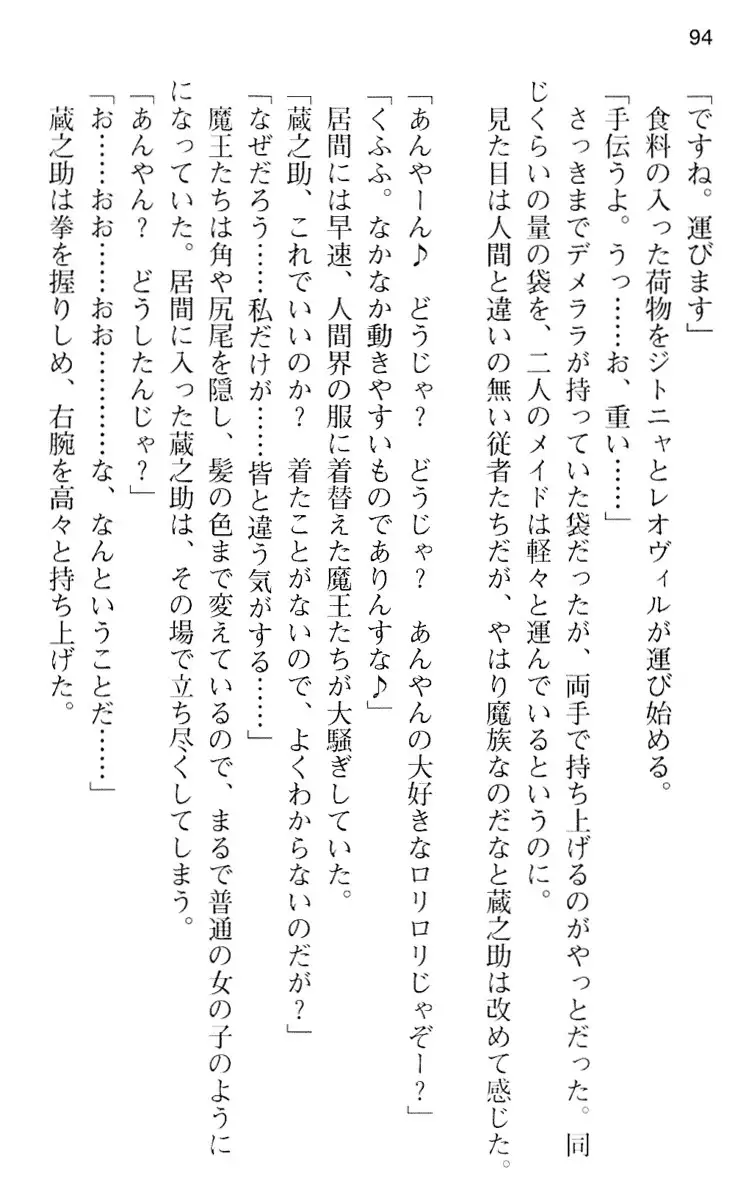 94
「ですね。運びます」
　食料の入った荷物をジトニャとレオヴィルが運び始める。
「手伝うよ。うっ……お、重い……」
　さっきまでデメララが持っていた袋だったが、両手で持ち上げるのがやっとだった。同
じくらいの量の袋を、二人のメイドは軽々と運んでいるというのに。
　見た目は人間と違いの無い従者たちだが、やはり魔族なのだなと蔵之助は改めて感じた。
「あんやーん♪　どうじゃ？　どうじゃ？　あんやんの大好きなロリロリじゃぞー？」
「くふふ。なかなか動きやすいものでありんすな♪」
　居間には早速、人間界の服に着替えた魔王たちが大騒ぎしていた。
「蔵之助、これでいいのか？　着たことがないので、よくわからないのだが？」
「なぜだろう……私だけが……皆と違う気がする……」
　魔王たちは角や尻尾を隠し、髪の色まで変えているので、まるで普通の女の子のように
になっていた。居間に入った蔵之助は、その場で立ち尽くしてしまう。
「あんやん？　どうしたんじゃ？」
「お……おお……おお…………な、なんということだ……」
　蔵之助は拳を握りしめ、右腕を高々と持ち上げた。